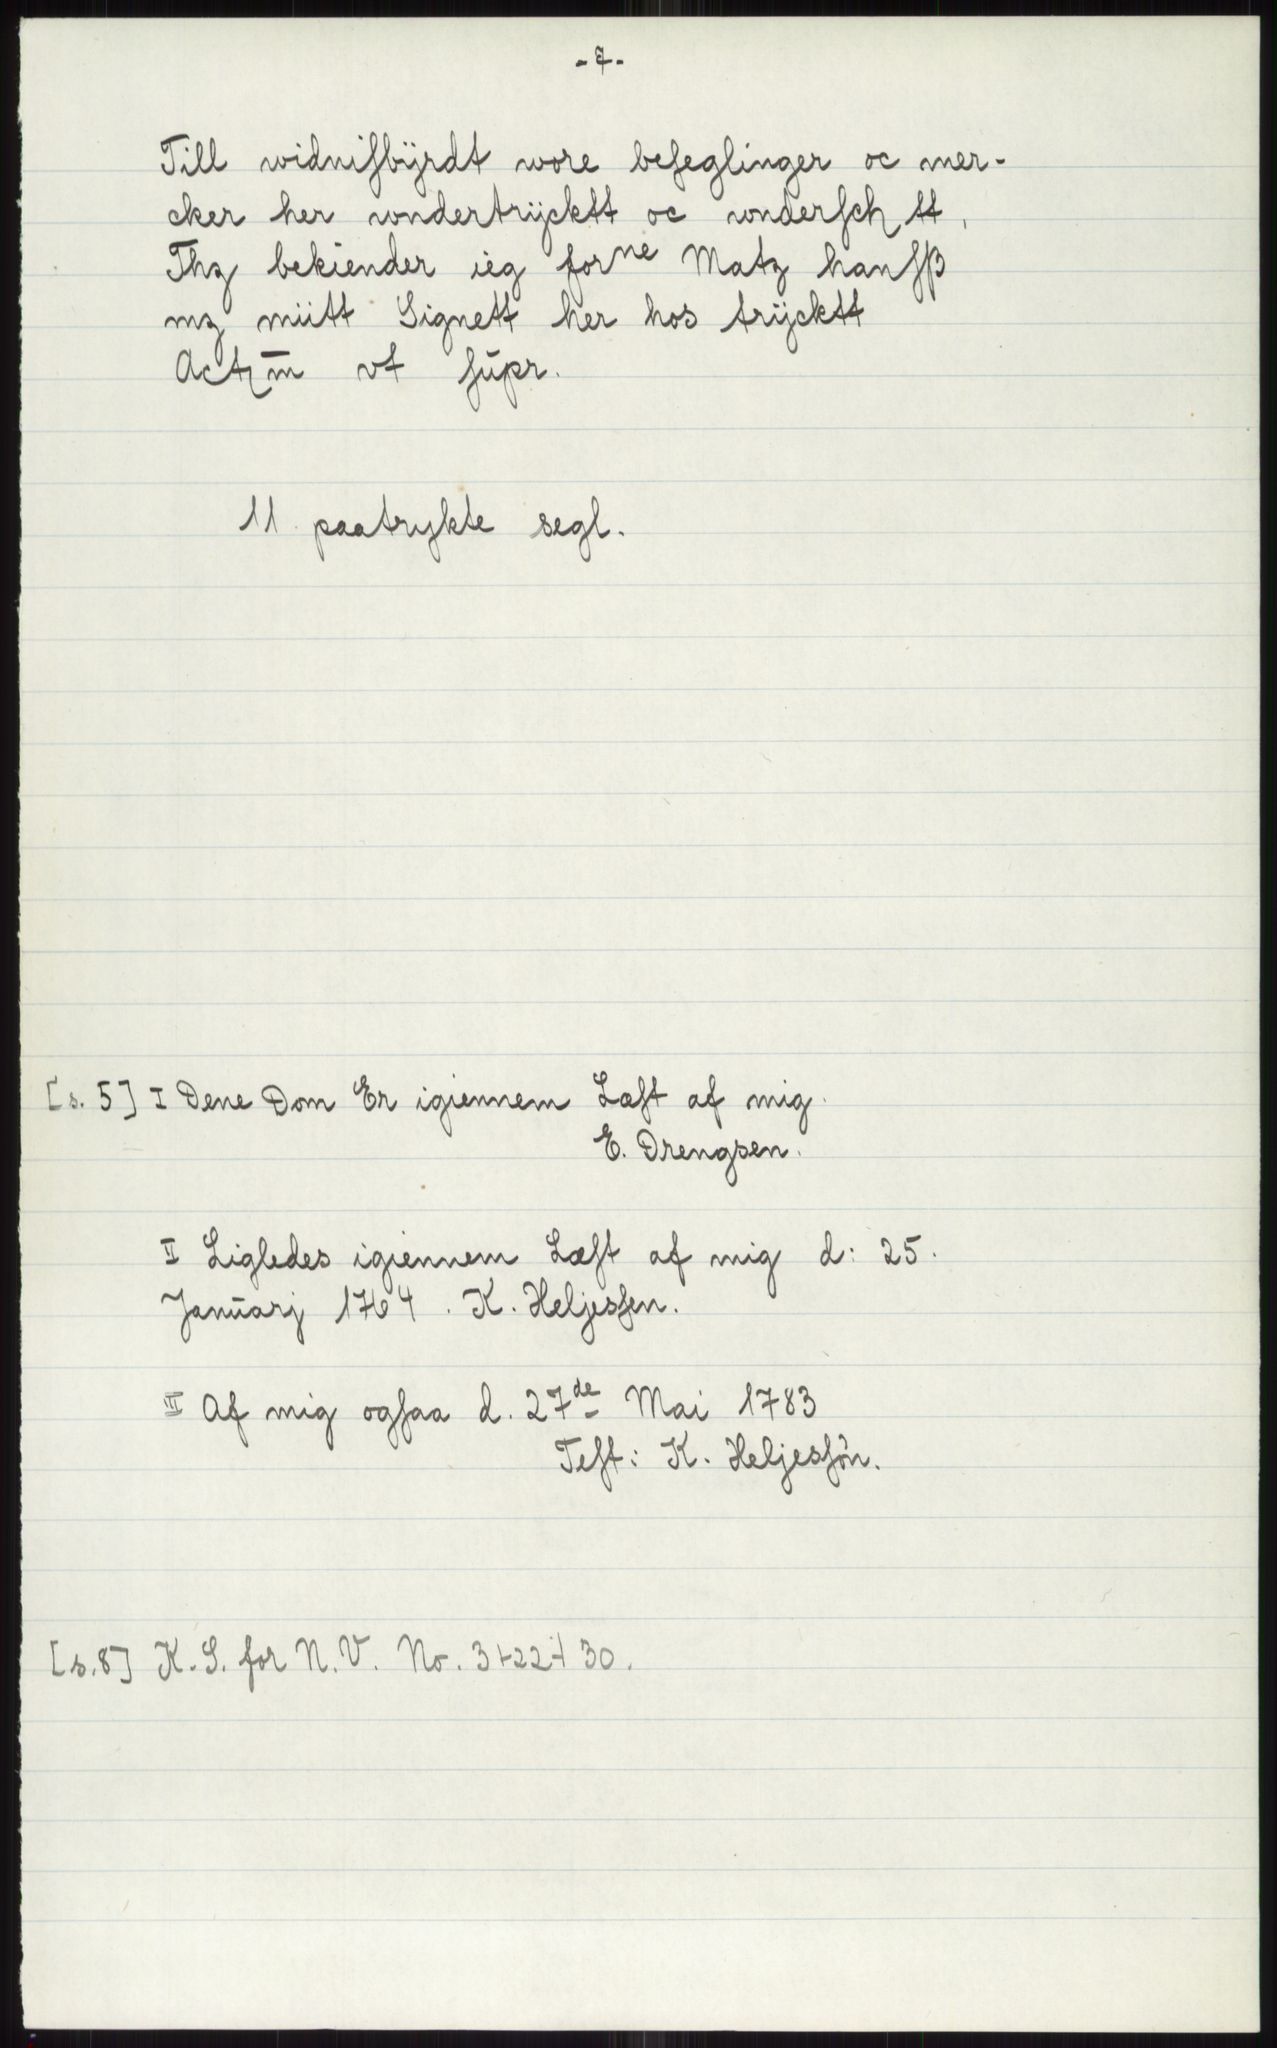 -7-
Till widniſbÿrdt wore beſeglinger oc mer-
cker her wndertrÿcktt oc wnderſch tt,
Thz bekiender ieg forne Matz hanſß
mz miitt Signett her hos trÿcktt
Actm̄ vt ſupr.
11 paatrykte segl.
[s. 5] I Dene Dom Er igiennem Læſt af mig.
E. Drengsen.
II Ligledes igiennem Læſt af mig d: 25.
Januarj 1764. K. Heljesſen.
III Af mig ogſaa d. 27de Mai 1783
Teſt: K. Heljesſön.
[s. 8] K. S. for N. V. No. 3+22+30.